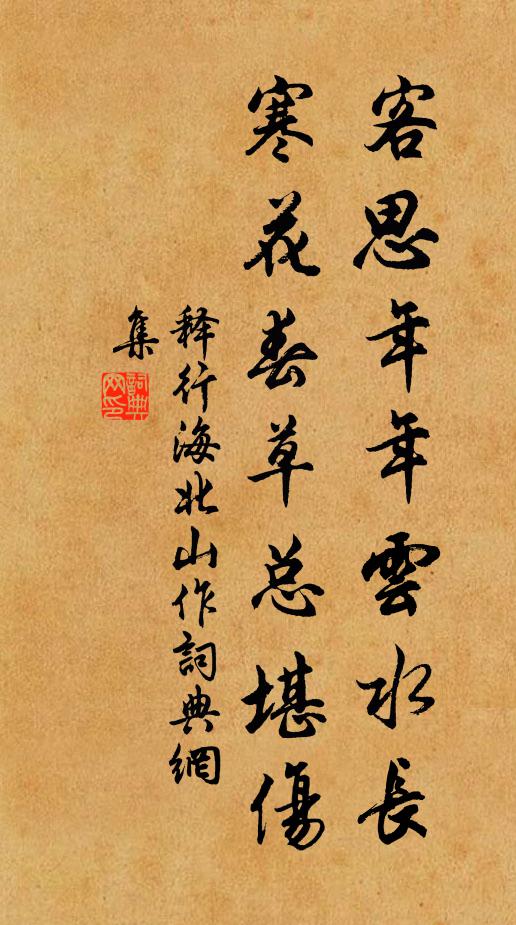 客思年年雲水長
寒花春草总堪傷
释行海北山作詞典網
集
詞典
网印